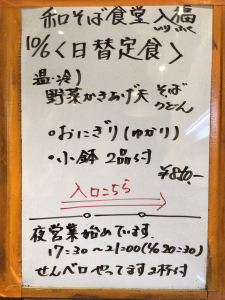 和そば食堂 入福
いり ふく
10/6〈日替定食〉
温・冷)
野菜かきあげ天 そば
うどん
・おにぎり(ゆかり)
・小鉢 2品付
¥840-
入口こちら
夜営業始めています。
17:30〜21:00(L/o 20:30)
せんベロやってます 2杯付